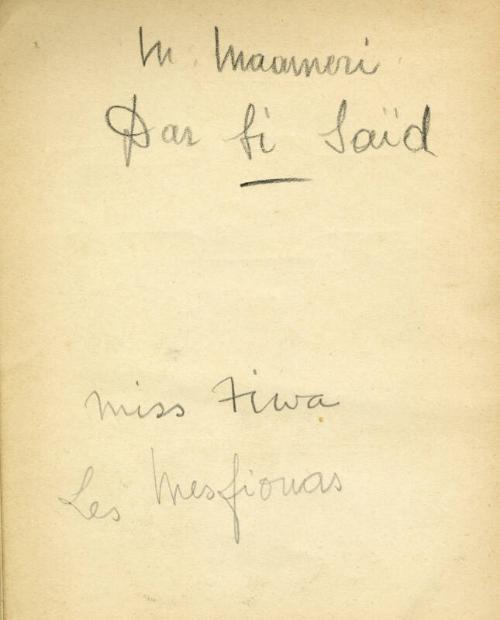 M. Maameri
Dar Si Saïd
Miss Fiwa
Les Mesfiouas